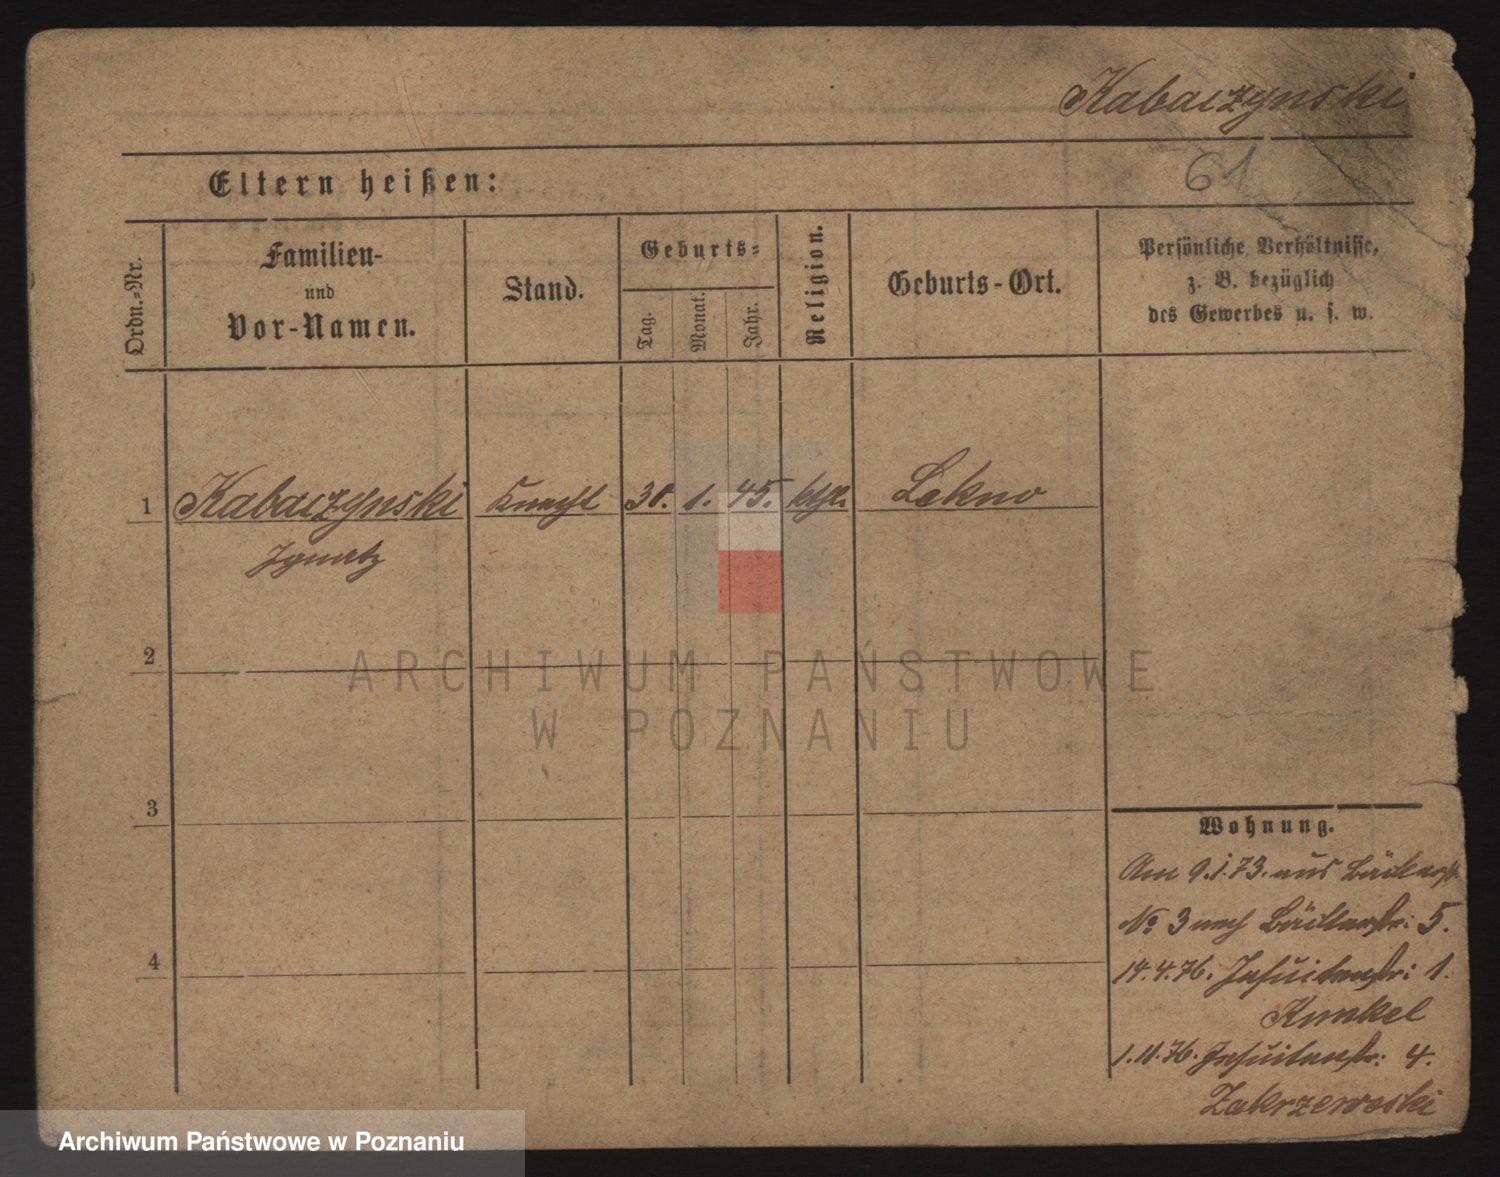 Kabaczynski
61
Eltern heißen:
Ordn.=Nr.
Familien-
und
Vor-Namen.
Stand.
Geburts=
Tag.
Monat.
Jahr.
Religion.
Geburts-Ort.
Persönliche Verhältnisse,
z. B. bezüglich
des Gewerbes u. s. w.
1 Kabaczynski Knecht 30. 1. 45. kthl. Lekno
Ignatz
2
ARCHIWUM PAŃSTWOWE
W POZNANIU
3
4
Wohnung.
Am 9.1.73. aus Bäckerstr.
No 3 nach Bäckerstr: 5.
14.4.76. Jesuitenstr: 1.
Kunkel
1.11.76. Jesuitenstr: 4.
Zakrzewski
Archiwum Państwowe w Poznaniu